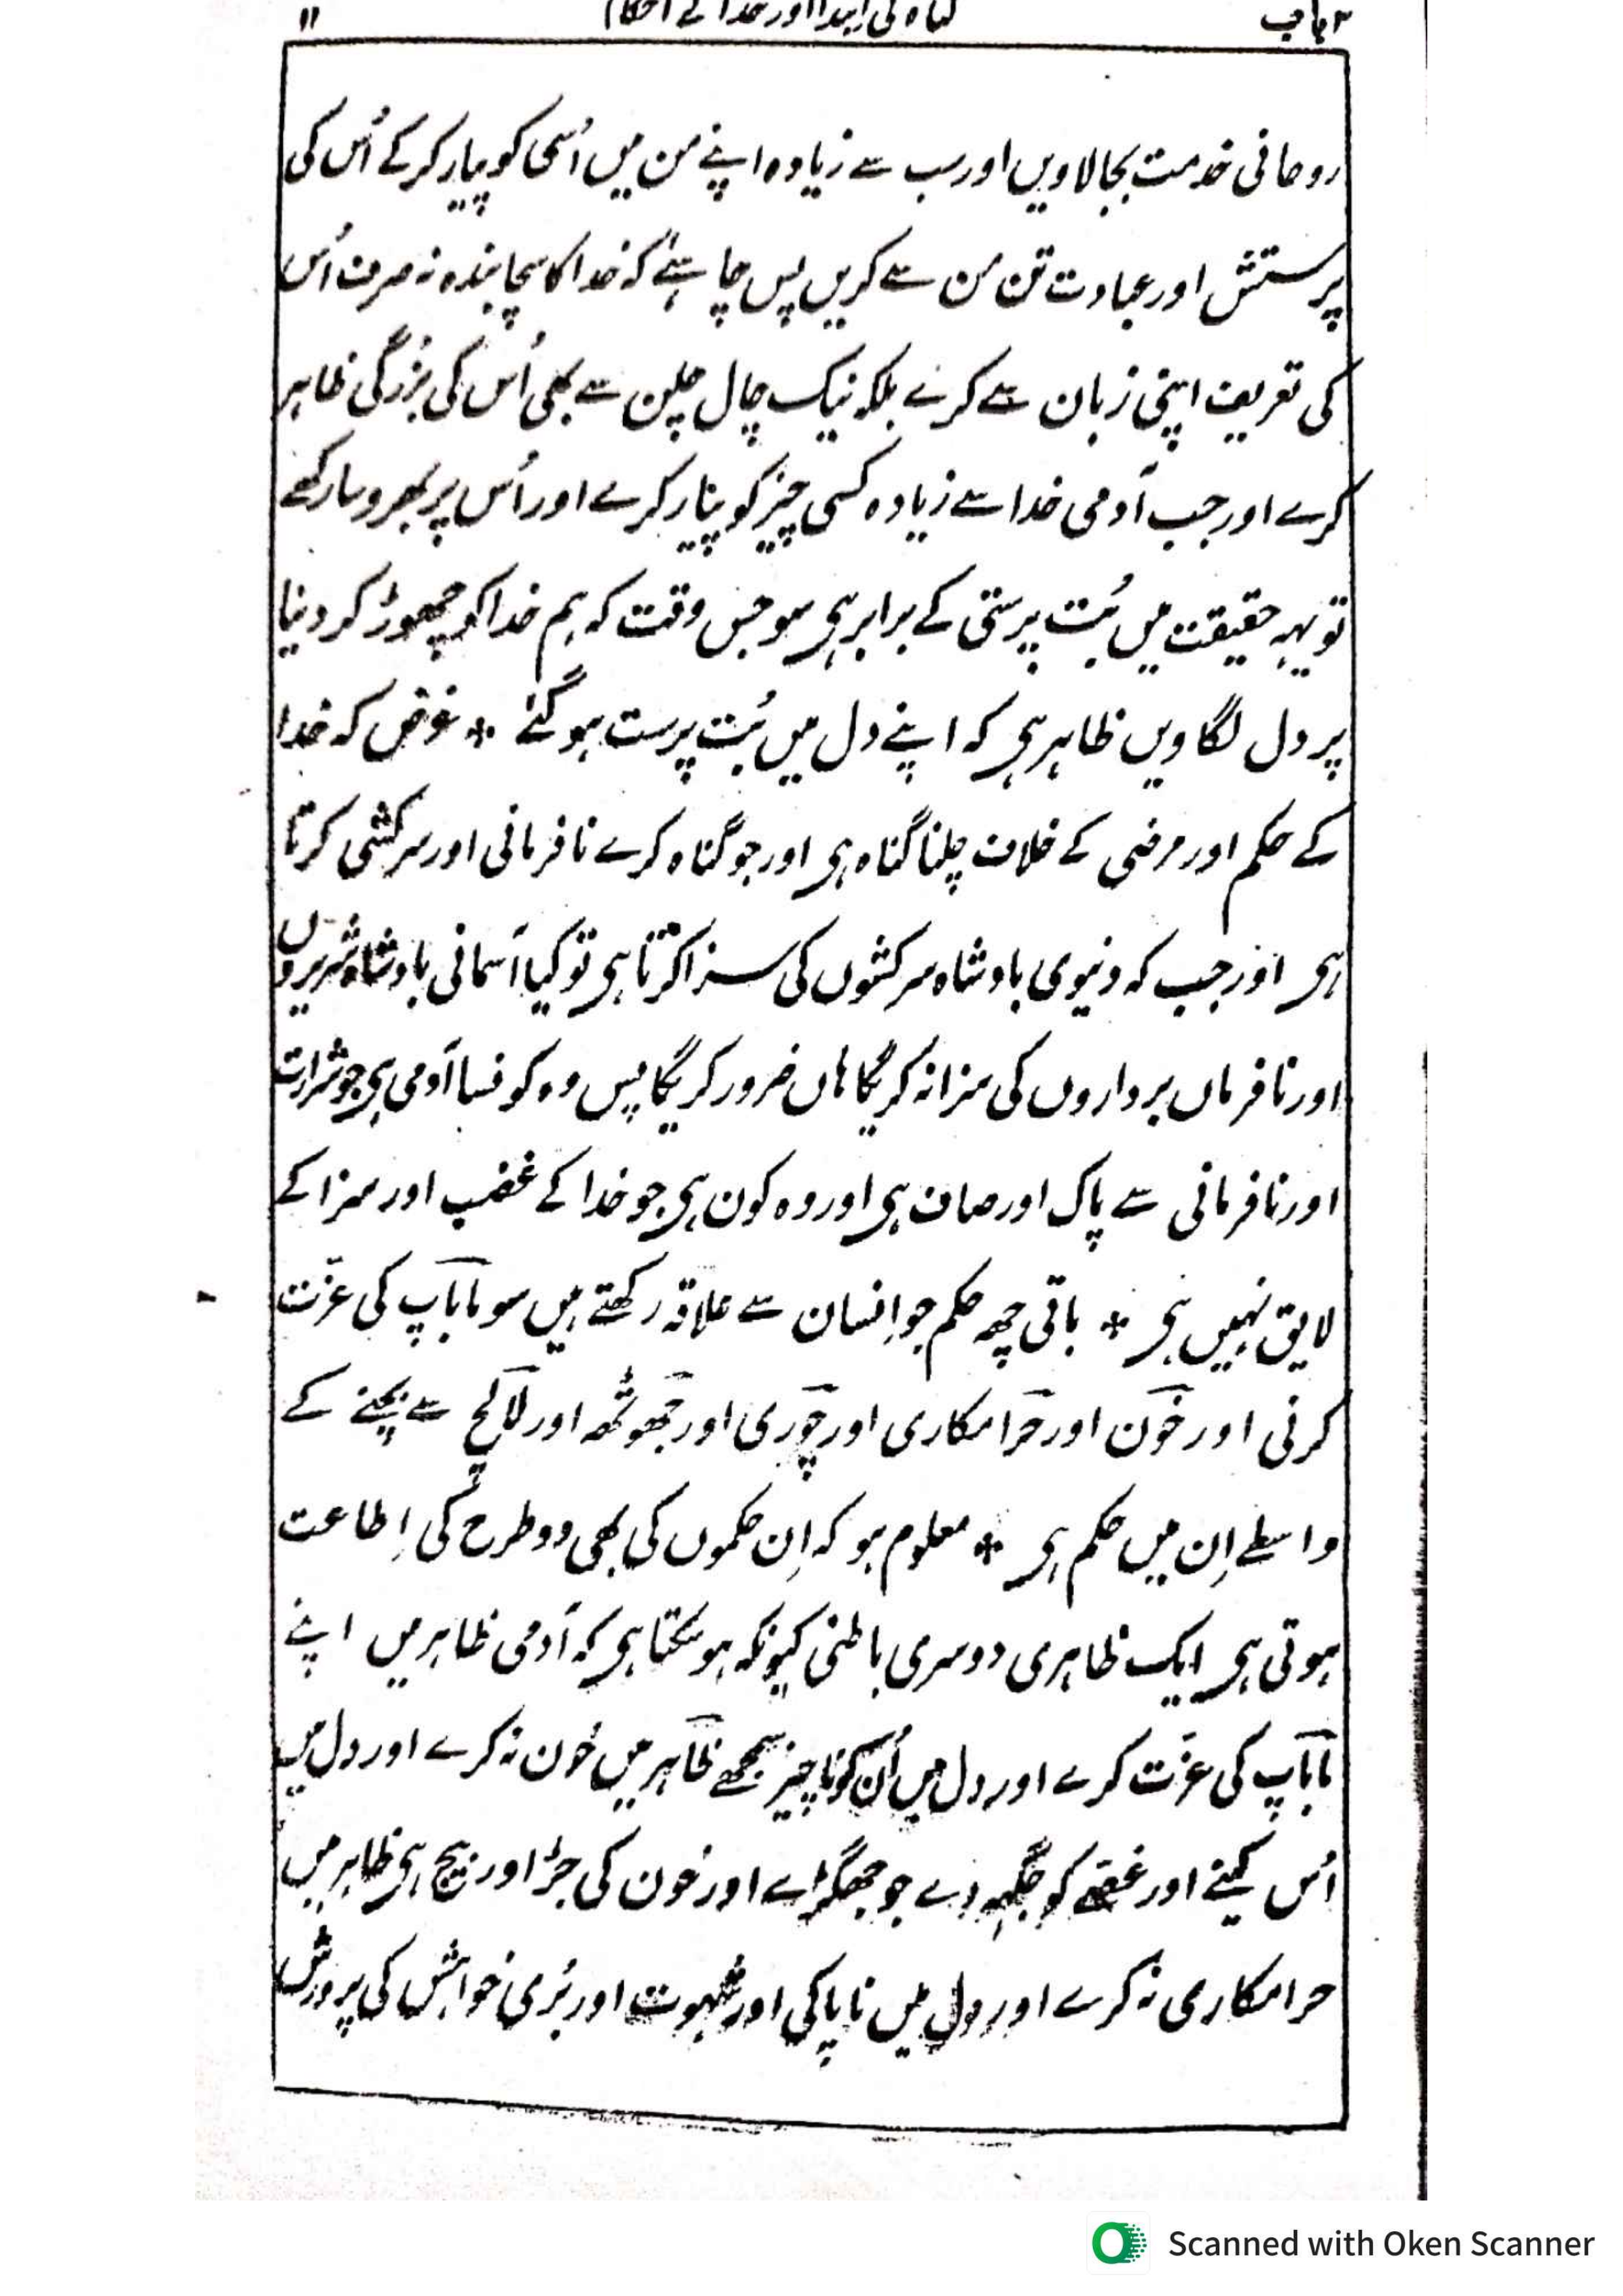 ۳ باب گناہ کی ابتدا اور خدا کے احکام ۱۱
روحانی خدمت بجالاویں اور سب سے زیادہ اپنے من میں اُسی کو پیار کرکے اُس کی
پرستش اور عبادت تن من سے کریں پس چاہئے کہ خدا کا سچا بندہ نہ صرف اُس
کی تعریف اپنی زبان سے کرے بلکہ نیک چال چلن سے بھی اُس کی بزرگی ظاہر
کرے اور جب آدمی خدا سے زیادہ کسی چیز کو پیار کرے اور اُس پر بھروسا رکھے
تو یہہ حقیقت میں بُت پرستی کے برابر ہی سو جس وقت کہ ہم خدا کو چھوڑ کر دنیا
پر دل لگاویں ظاہر ہی کہ اپنے دل میں بُت پرست ہوگئے * غرض کہ خدا
کے حکم اور مرضی کے خلاف چلنا گناہ ہی اور جو گناہ کرے نافرمانی اور سرکشی کرتا
ہی اور جب کہ دنیوی بادشاہ سرکشوں کی سزا کرتا ہی تو کیا آسمانی بادشاہ شریروں
اور نافرماں برداروں کی سزا نہ کریگا ہاں ضرور کریگا پس وہ کونسا آدمی ہی جو شرارت
اور نافرمانی سے پاک اور صاف ہی اور وہ کون ہی جو خدا کے غضب اور سزا کے
لایق نہیں ہی * باقی چھہ حکم جو اِنسان سے علاقہ رکھتے ہیں سو ماباپ کی عزّت
کرنی اور خون اور حرامکاری اور چوری اور جھوٹھہ اور لالچ سے بچنے کے
واسطے اِن میں حکم ہی * معلوم ہو کہ اِن حکموں کی بھی دو طرح کی اِطاعت
ہوتی ہی ایک ظاہری دوسری باطنی کیونکہ ہو سکتا ہی کہ آدمی ظاہر میں اپنے
ماباپ کی عزّت کرے اور دل میں اُن کو ناچیز سمجھے ظاہر میں خُون نہ کرے اور دل میں
اُس کینے اور غصّے کو جگہہ دے جو جھگڑے اور خون کی جڑ اور بیج ہی ظاہر میں
حرامکاری نہ کرے اور دل میں ناپاکی اور شہوت اور بُری خواہش کی پرورش
Scanned with Oken Scanner